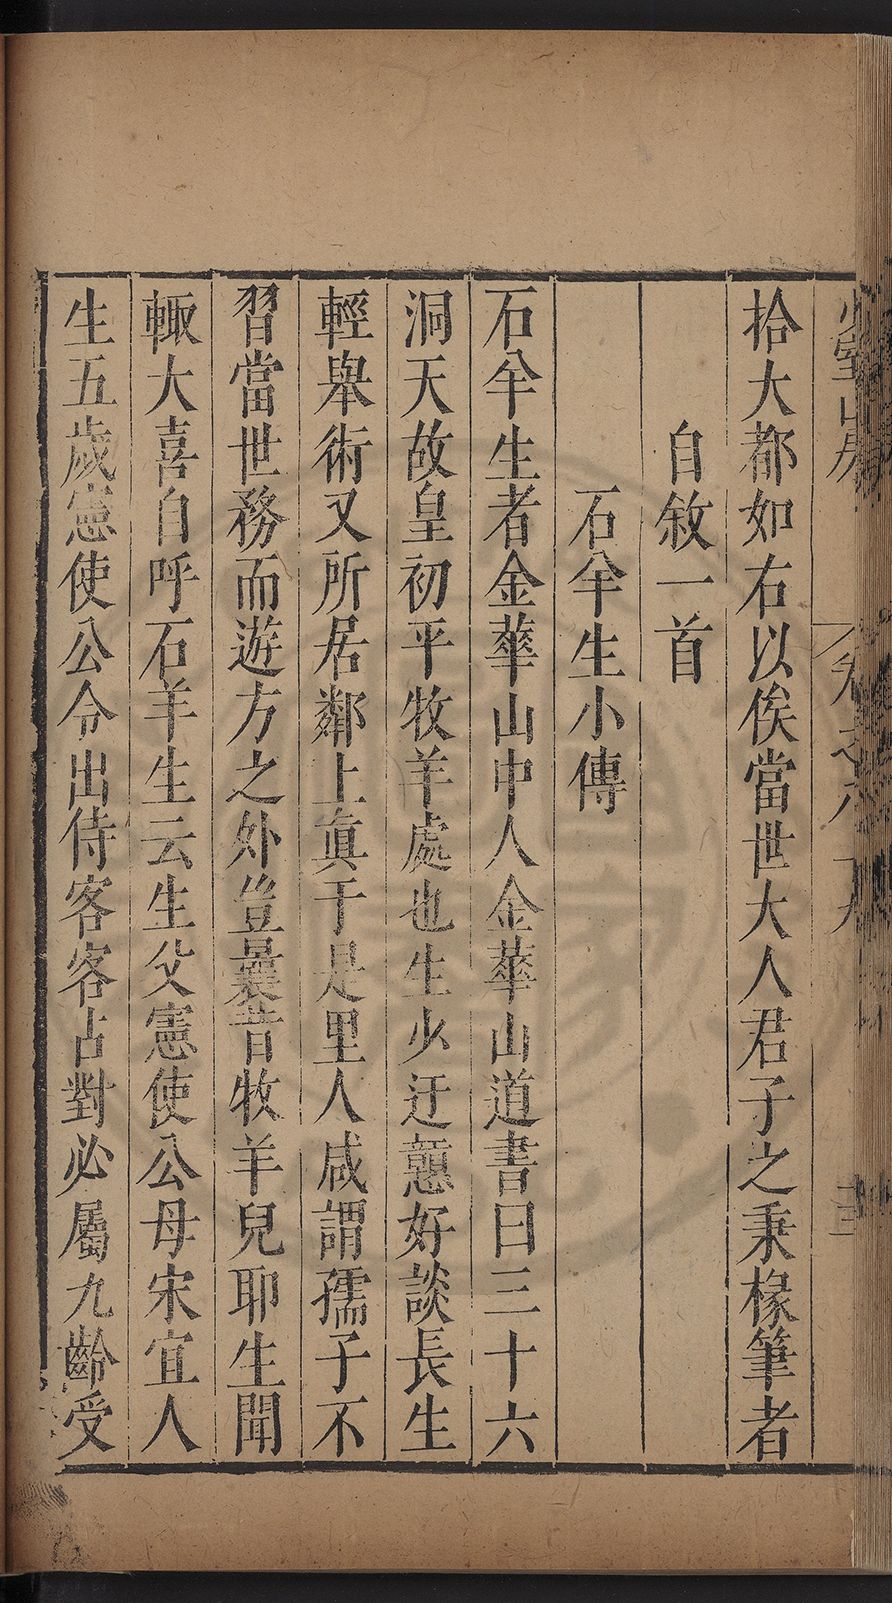 拾大都如右以俟當世大人君子之秉椽筆者
自敘一首
石羊生小傳
石羊生者金華山中人金華山道書曰三十六
洞天故皇初平牧羊處也生少迂戇好談長生
輕舉術又所居鄰上真于是里人咸謂孺子不
習當世務而遊方之外豈曩昔牧羊兒耶生聞
輒大喜自呼石羊生云生父憲使公母宋宜人
生五歲憲使公令出侍客客占對必屬九齡受